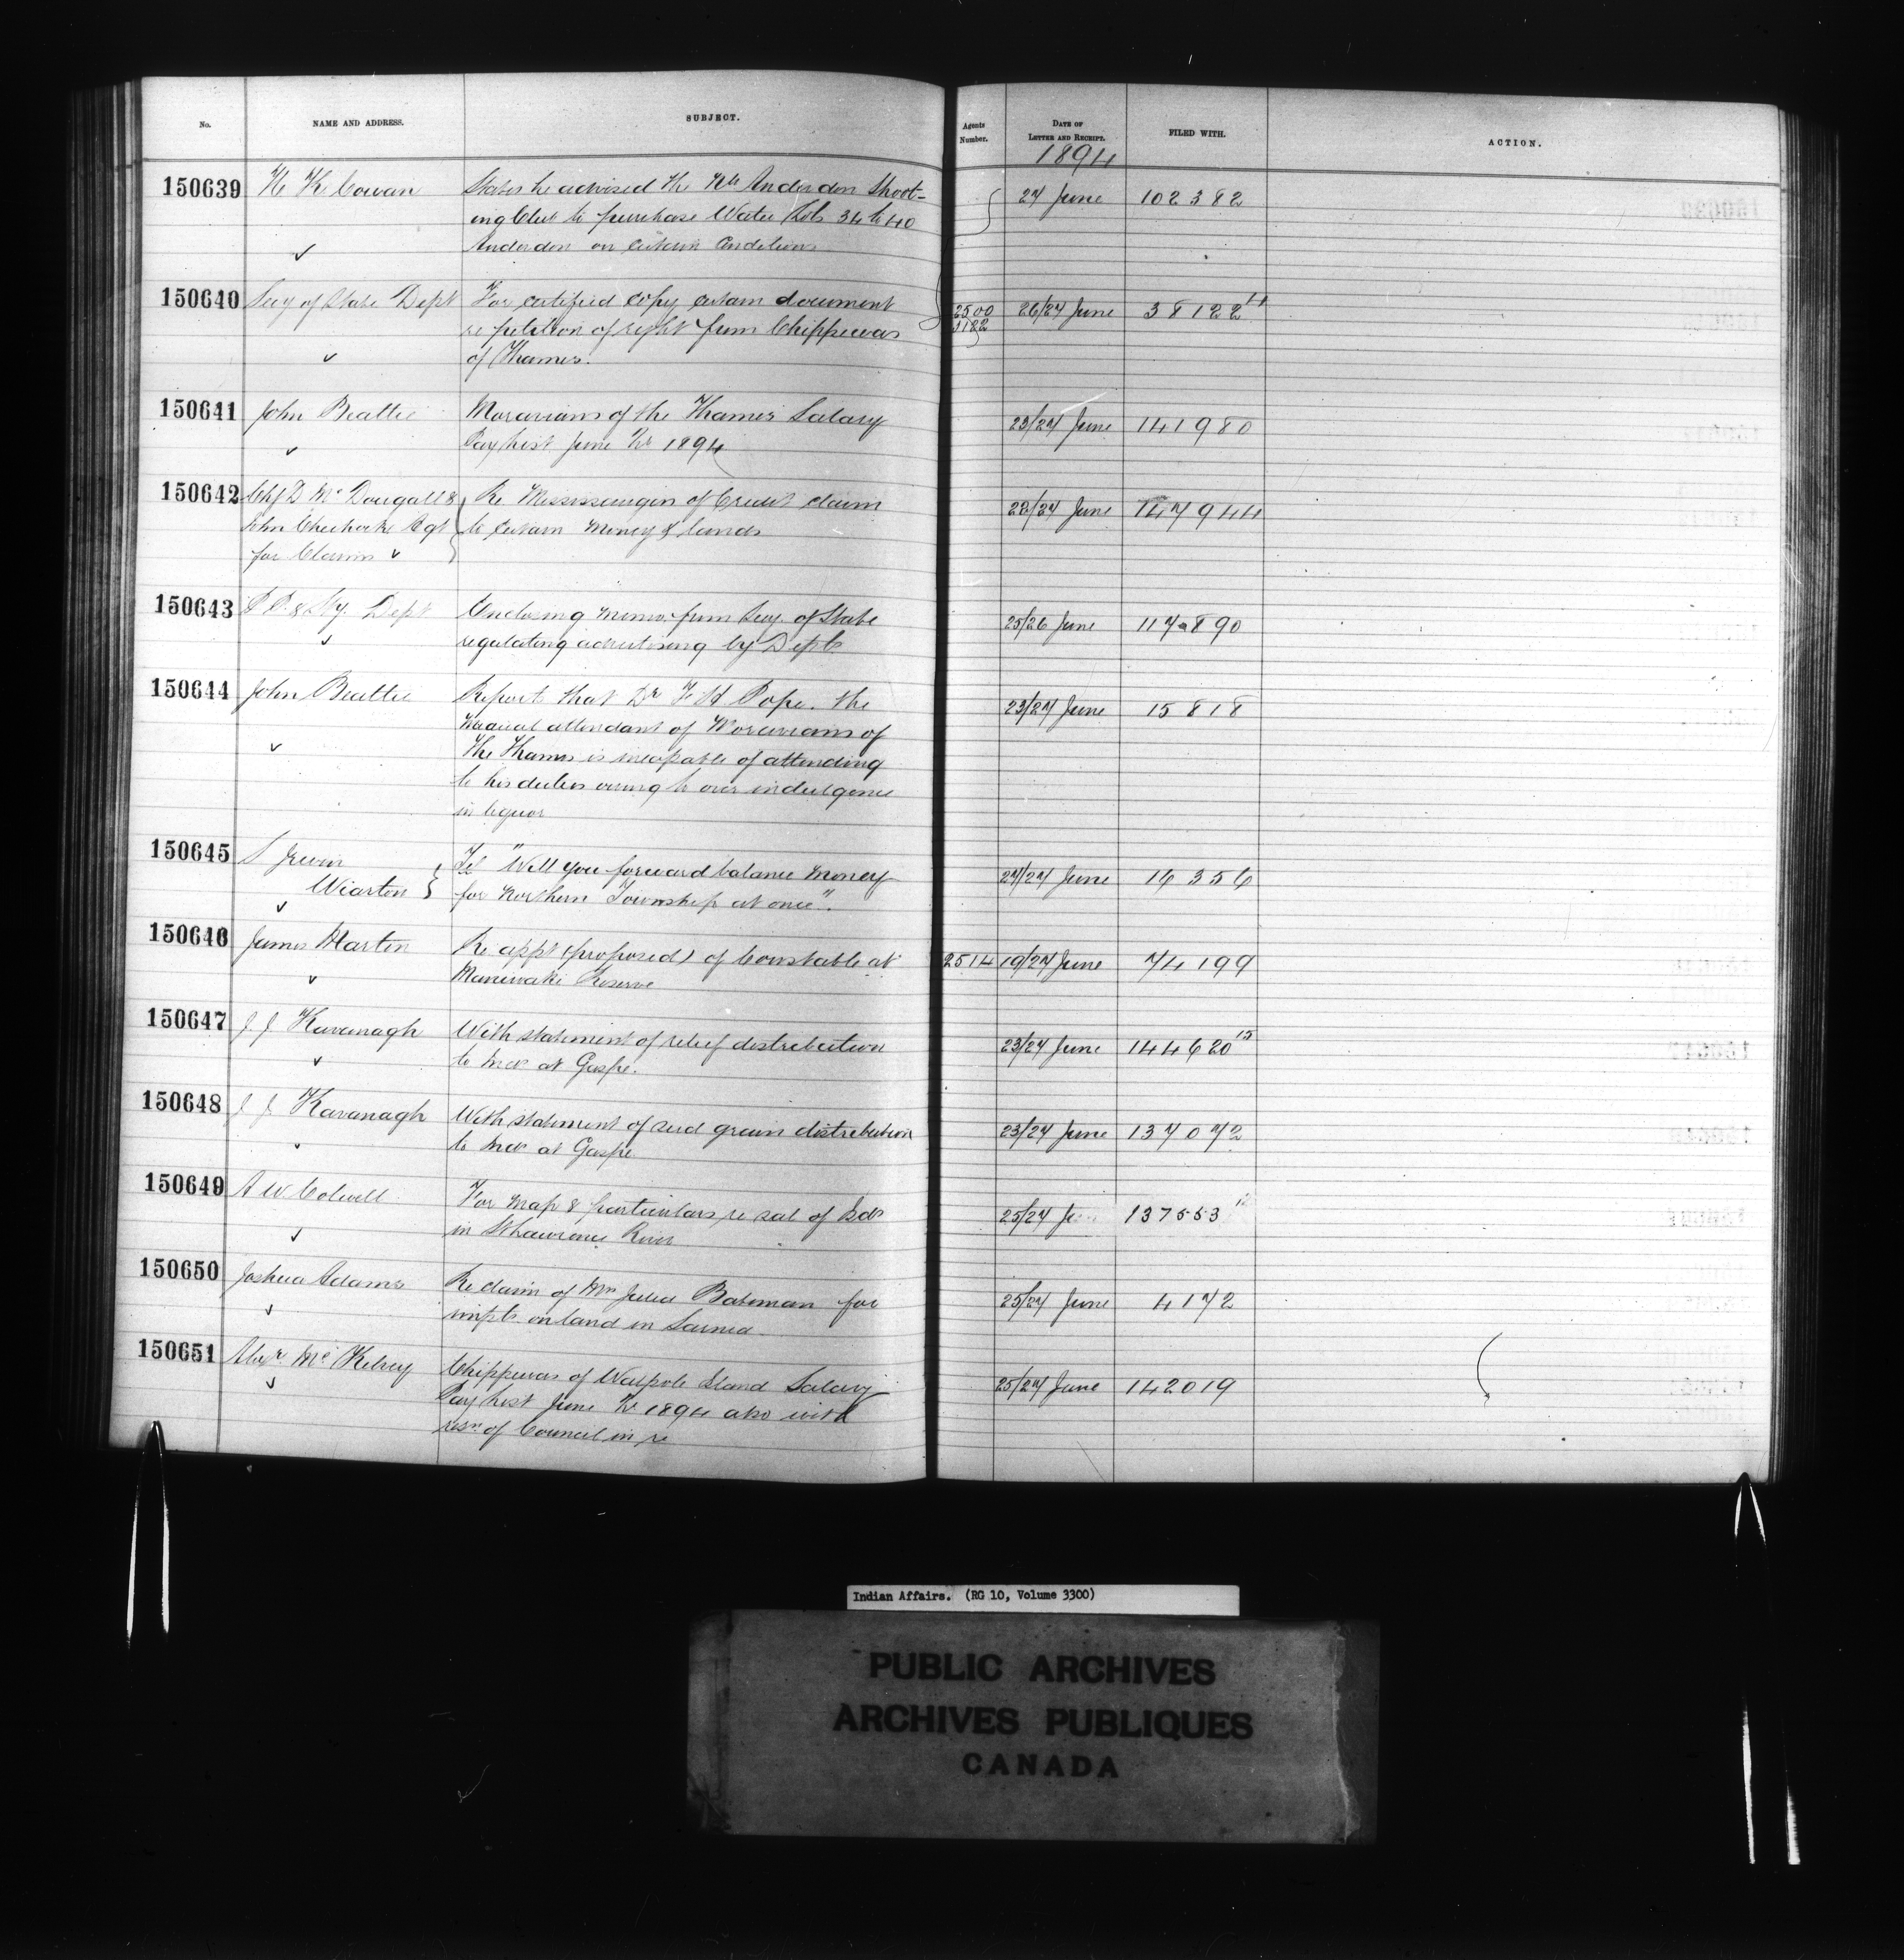 No. NAME AND ADDRESS. SUBJECT. Agents Number. DATE OF LETTER AND RECEIPT. FILED WITH. ACTION.
1894
150639 K Cowan States he advised the Anderdon Shoot- 27 June 102382
ing Club to purchase Water Lots 34 to 40
Anderdon on certain conditions
150640 Secy of State Dept For certified copy certain document 2500 26/27 June 38122
re petition of right from Chippewas 3182
of Thames.
150641 John Beattie Moravians of the Thames Salary 23/27 June 141980
Pay List June 1894
150642 Chf D McDougall & Re Mississaugas of Credit claim 147944
John Agt to certain money & lands
for Claims
150643 P. P. & Sty. Dept Enclosing memo. from Secy. of State 25/26 June 117890
regulating advertising by Depts
150644 John Beattie Reports that Dr F H Pope. the 23/27 June 15818
Medical attendant of Moravians of
the Thames is incapable of attending
to his duties owing to over indulgence
in liquor
150645 S Irwin Tel "Will you forward balance money 27/27 June 16356
Wiarton for Northern Township at once".
150646 James Martin Re appt (proposed) of Constable at 2514 19/27 June 74199
Maniwaki Reserve
150647 J J Kavanagh With statement of relief distribution 23/27 June 144620 15
to Inds at Gaspe.
150648 J J Kavanagh With statement of seed grain distribution 23/27 June 137072
to Inds at Gaspe
150649 A W Colwell For map & particulars re sale of Isds 25/27 137553
in St Lawrence River
150650 Joshua Adams Re claim of Mrs Julia Bateman for 25/27 June 4172
impts. on land in Sarnia
150651 Alexr McKelvey Chippewas of Walpole Island Salary 25/27 June 142019
Pay List June 1894 also with
resn. of Council in re
Indian Affairs. (RG 10, Volume 3300)
PUBLIC ARCHIVES
ARCHIVES PUBLIQUES
CANADA